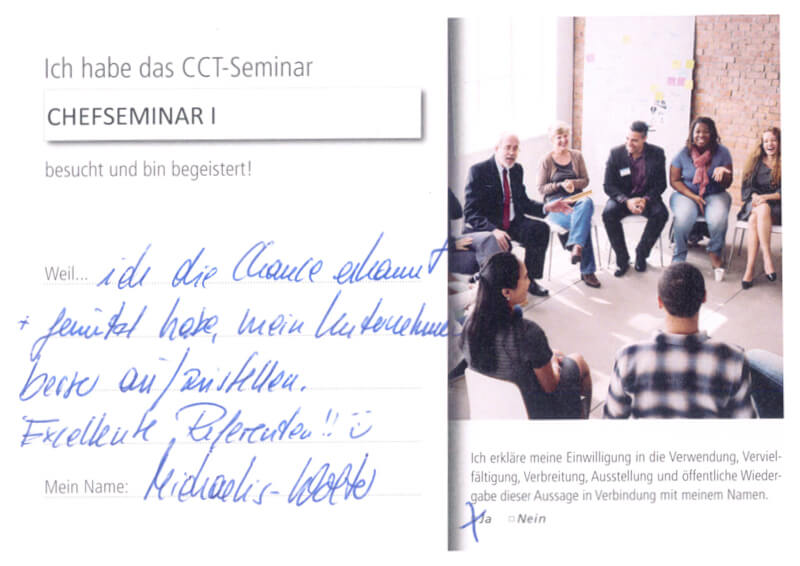 Ich habe das CCT-Seminar
CHEFSEMINAR I
besucht und bin begeistert!
Weil... ich die Chance erkannt
+ genützt habe, mein Unternehmen
besser aufzustellen.
Excellente Referenten!! :)
Mein Name: Michaelis-Wolter
Ich erkläre meine Einwilligung in die Verwendung, Verviel-
fältigung, Verbreitung, Ausstellung und öffentliche Wieder-
gabe dieser Aussage in Verbindung mit meinem Namen.
x Ja □ Nein